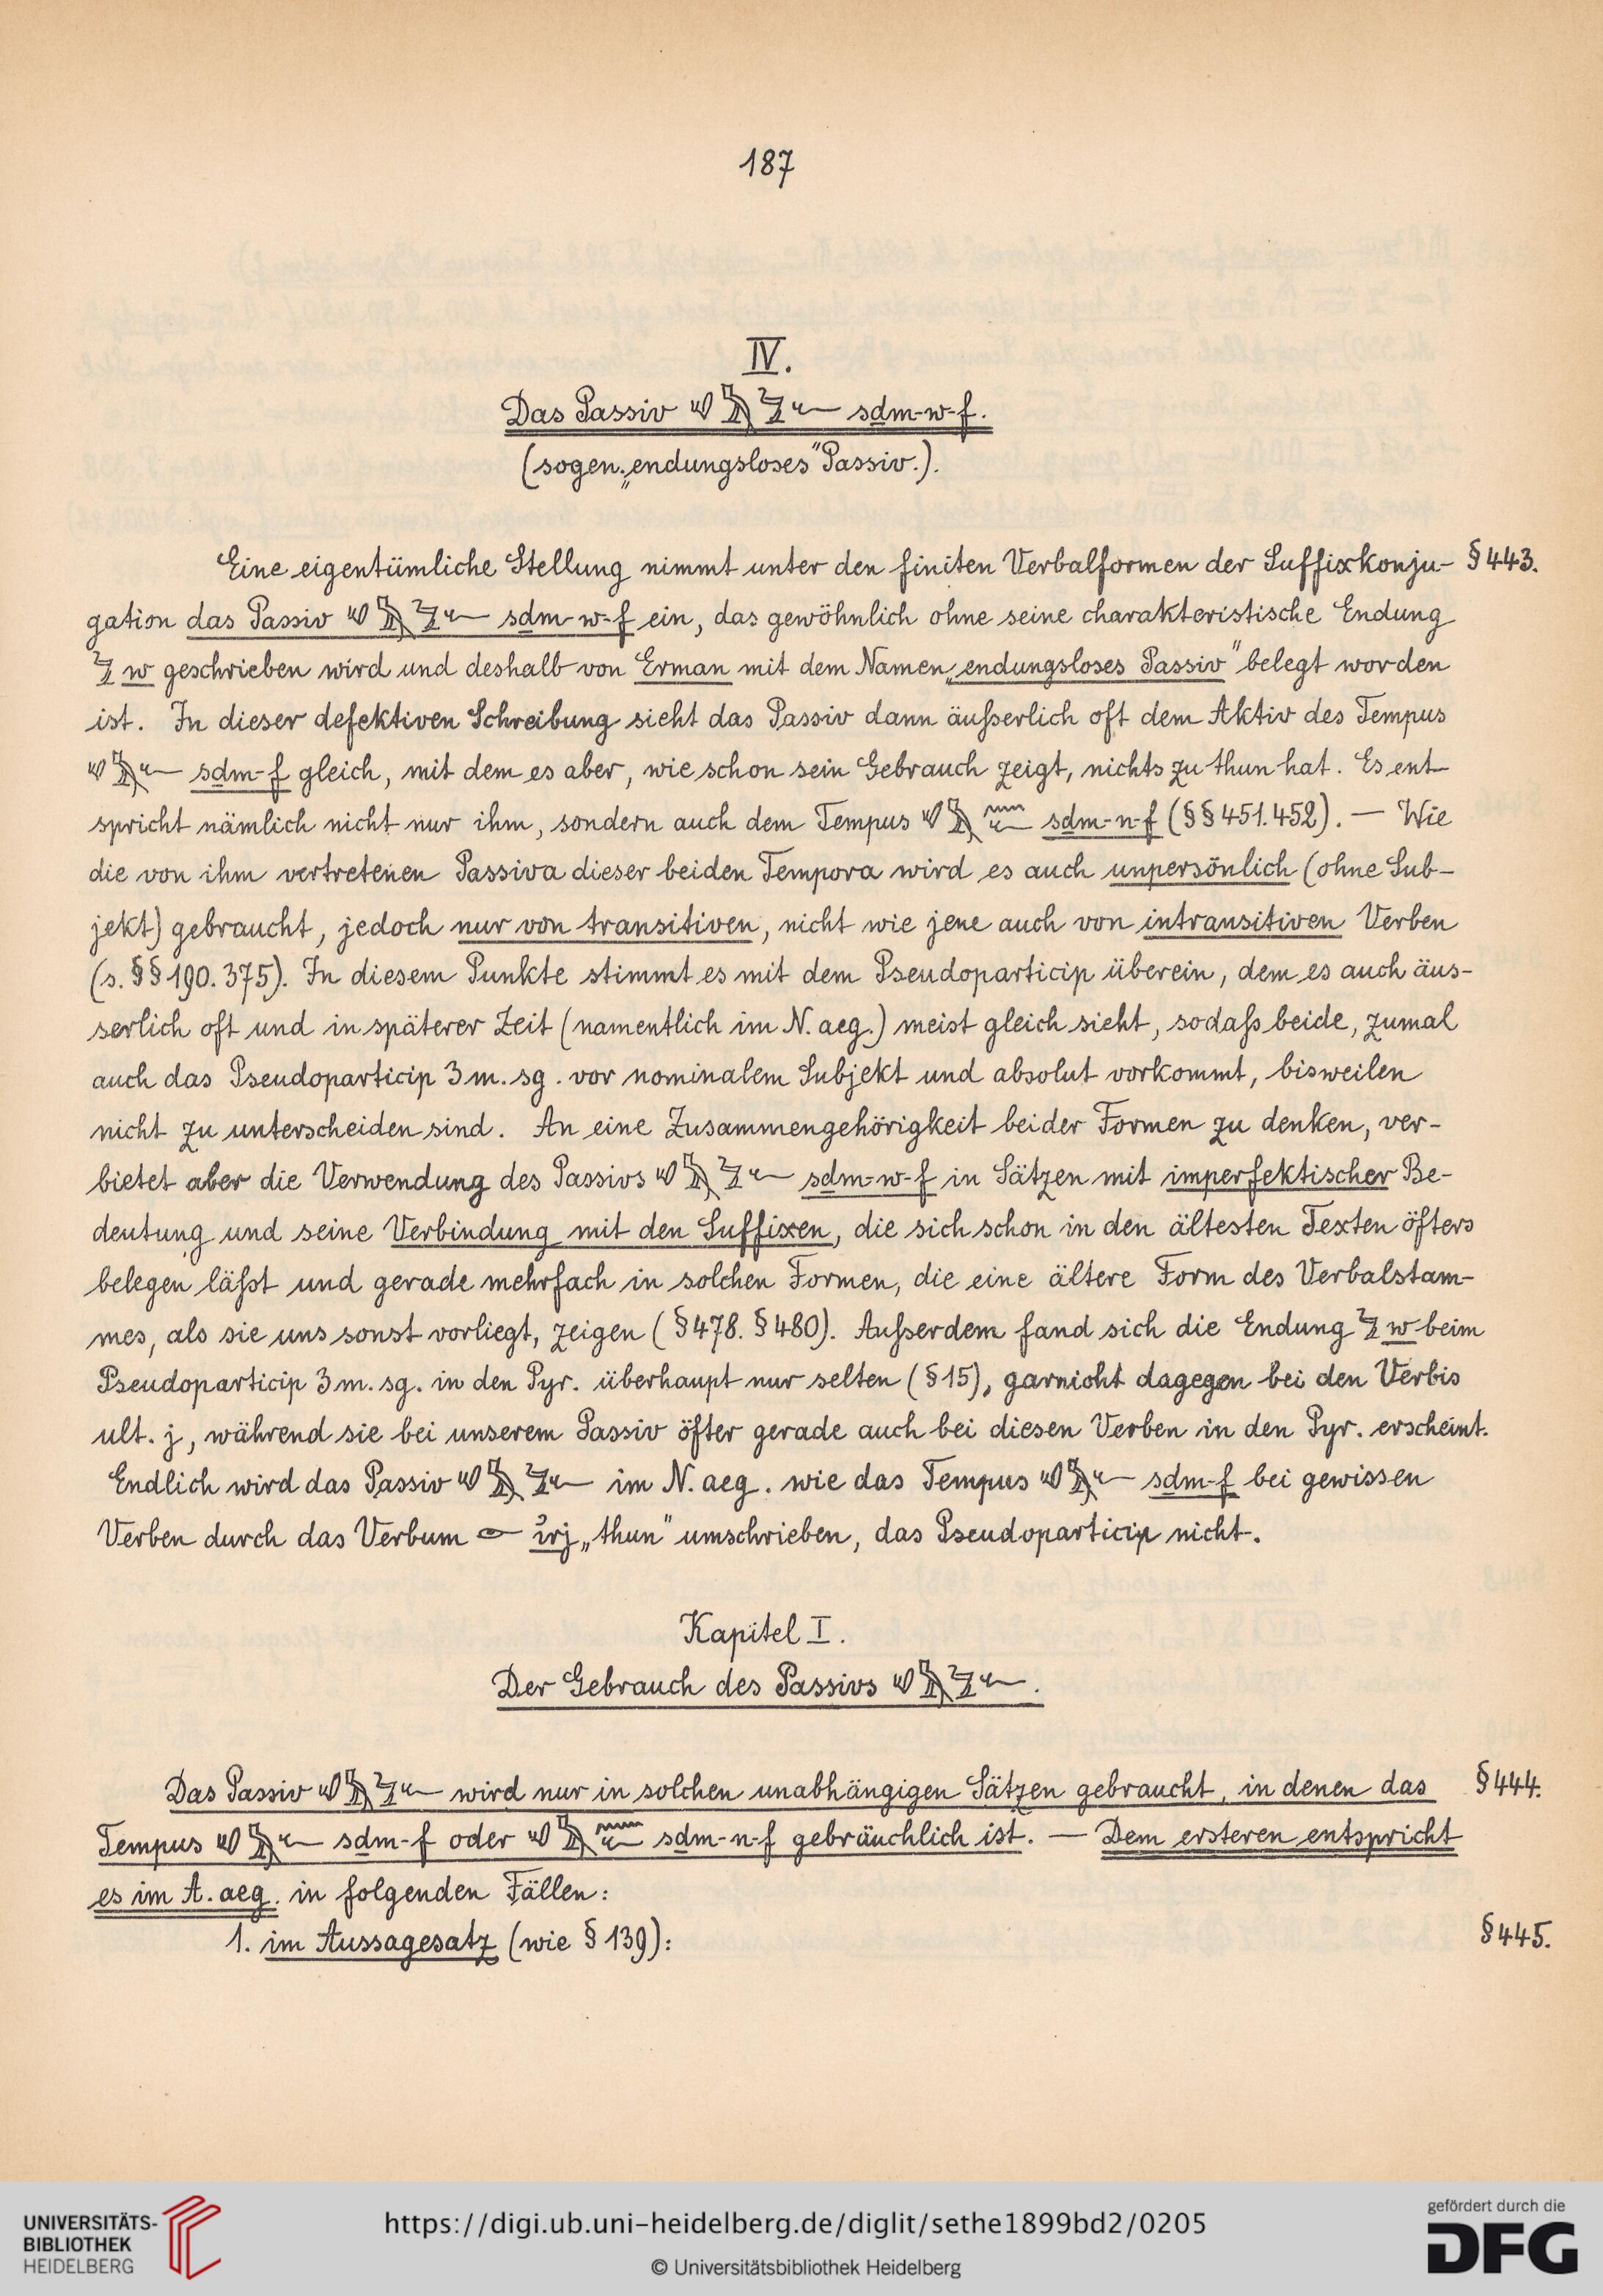 187
IV.
Das Passiv 𓄔𓅓𓅱𓆑 sḏm-w-f.
(sogen. „endungsloses“ Passiv.).
Eine eigentümliche Stellung nimmt unter den finiten Verbalformen der Suffixkonju- § 443.
gation das Passiv 𓄔𓅓𓅱𓆑 sḏm-w-f ein, das gewöhnlich ohne seine charakteristische Endung
𓅱 w geschrieben wird und deshalb von Erman mit dem Namen „endungsloses Passiv“ belegt worden
ist. In dieser defektiven Schreibung sieht das Passiv dann äußerlich oft dem Aktiv des Tempus
𓄔𓅓𓆑 sḏm-f gleich, mit dem es aber, wie schon sein Gebrauch zeigt, nichts zu thun hat. Es ent-
spricht nämlich nicht nur ihm, sondern auch dem Tempus 𓄔𓅓𓈖𓆑 sḏm-n-f (§§ 451. 452). — Wie
die von ihm vertretenen Passiva dieser beiden Tempora wird es auch unpersönlich (ohne Sub-
jekt) gebraucht, jedoch nur von transitiven, nicht wie jene auch von intransitiven Verben
(s. §§ 190. 375). In diesem Punkte stimmt es mit dem Pseudoparticip überein, dem es auch äus-
serlich oft und in späterer Zeit (namentlich im N. aeg.) meist gleich sieht, sodaß beide, zumal
auch das Pseudoparticip 3 m. sg. vor nominalem Subjekt und absolut vorkommt, bisweilen
nicht zu unterscheiden sind. An eine Zusammengehörigkeit beider Formen zu denken, ver-
bietet aber die Verwendung des Passivs 𓄔𓅓𓅱𓆑 sḏm-w-f in Sätzen mit imperfektischer Be-
deutung und seine Verbindung mit den Suffixen, die sich schon in den ältesten Texten öfters
belegen läßt und gerade mehrfach in solchen Formen, die eine ältere Form des Verbalstam-
mes, als sie uns sonst vorliegt, zeigen (§ 478. § 480). Außerdem fand sich die Endung 𓅱 w beim
Pseudoparticip 3 m. sg. in den Pyr. überhaupt nur selten (§ 15), garnicht dagegen bei den Verbis
ult. j, während sie bei unserem Passiv öfter gerade auch bei diesen Verben in den Pyr. erscheint.
Endlich wird das Passiv 𓄔𓅓𓅱𓆑 im N. aeg. wie das Tempus 𓄔𓅓𓆑 sḏm-f bei gewissen
Verben durch das Verbum 𓁹 ꞽrj „thun“ umschrieben, das Pseudoparticip nicht.
Kapitel I.
Der Gebrauch des Passivs 𓄔𓅓𓅱𓆑.
Das Passiv 𓄔𓅓𓅱𓆑 wird nur in solchen unabhängigen Sätzen gebraucht, in denen das § 444.
Tempus 𓄔𓅓𓆑 sḏm-f oder 𓄔𓅓𓈖𓆑 sḏm-n-f gebräuchlich ist. — Dem ersteren entspricht
es im A. aeg. in folgenden Fällen:
1. im Aussagesatz (wie § 139): § 445.
UNIVERSITÄTS-
BIBLIOTHEK
HEIDELBERG
https://digi.ub.uni-heidelberg.de/diglit/sethe1899bd2/0205
© Universitätsbibliothek Heidelberg
gefördert durch die
DFG